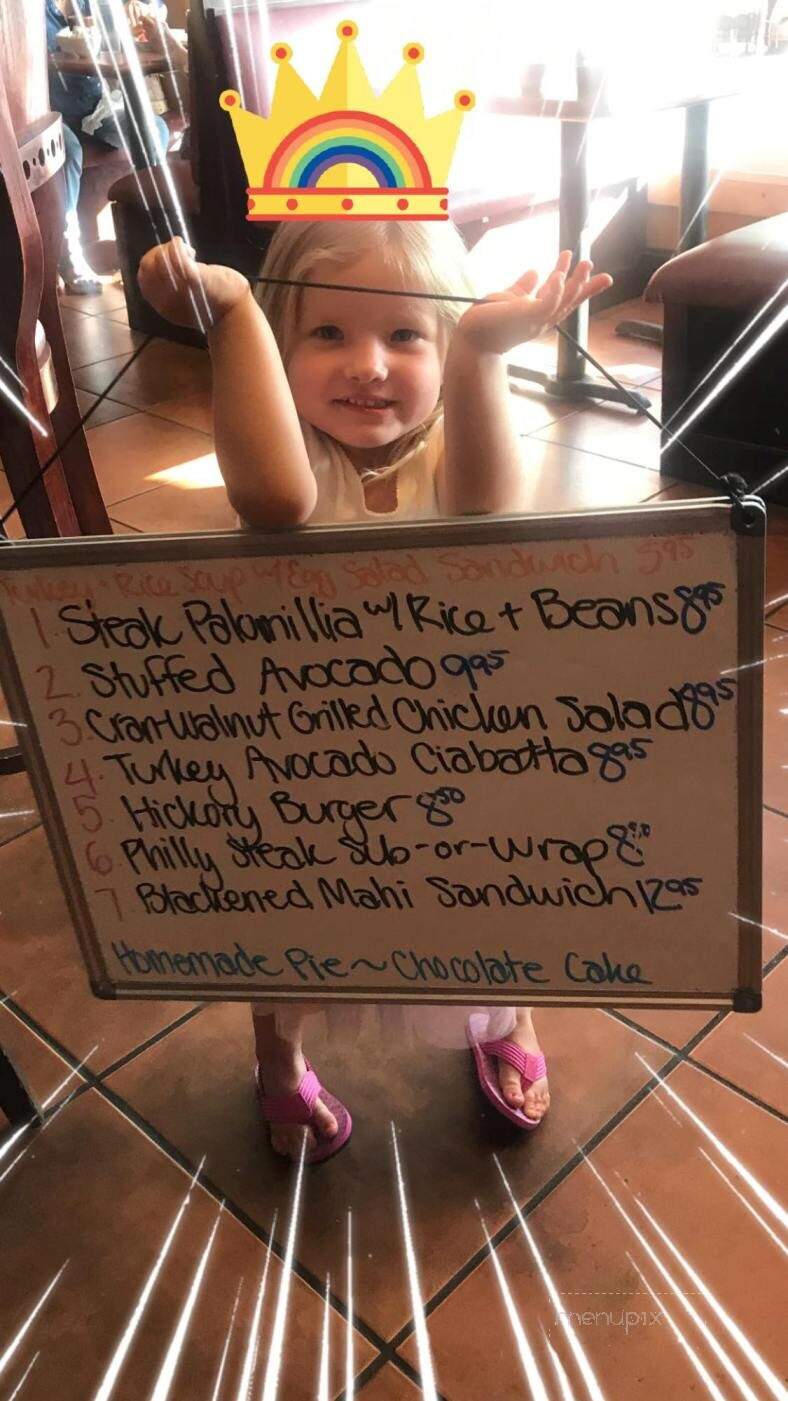 Turkey-Rice Soup w/ Egg Salad Sandwich 5 95
1. Steak Palomillia w/ Rice + Beans 8 95
2. Stuffed Avocado 9 95
3. Cran-Walnut Grilled Chicken Salad 8 95
4. Turkey Avocado Ciabatta 8 95
5. Hickory Burger 8 50
6. Philly Steak Sub-or-Wrap 8
7 Blackened Mahi Sandwich 12 95
Homemade Pie ~ Chocolate Cake
menupix